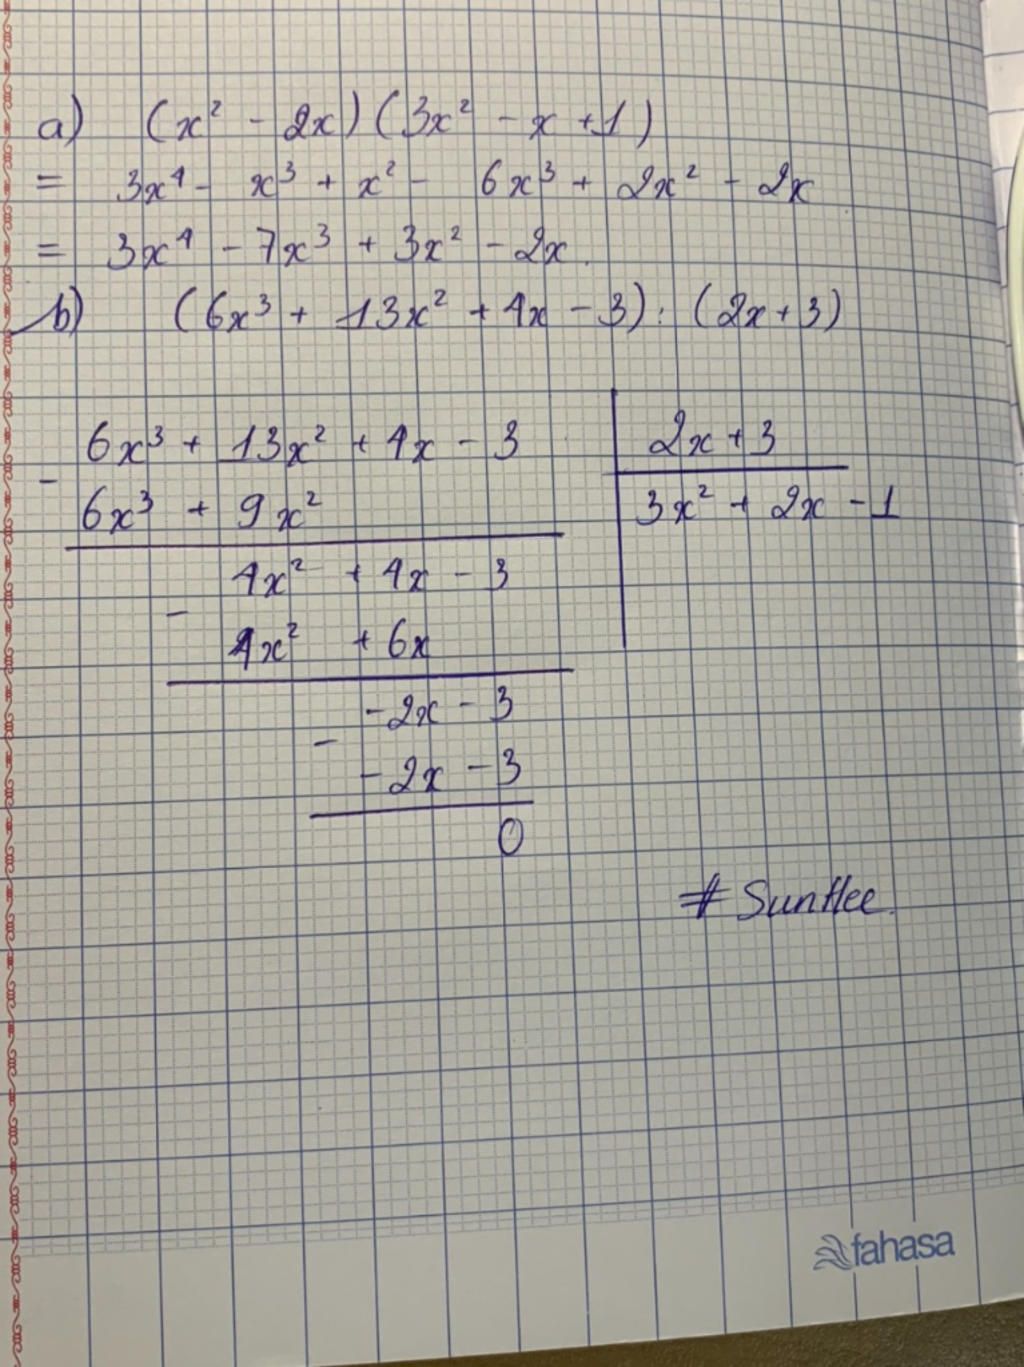 a) (x² - 2x)(3x² - x + 1)
= 3x⁴ - x³ + x² - 6x³ + 2x² - 2x
= 3x⁴ - 7x³ + 3x² - 2x.
b) (6x³ + 13x² + 4x - 3) : (2x + 3)
6x³ + 13x² + 4x - 3 | 2x + 3
-
6x³ + 9x² | 3x² + 2x - 1
4x² + 4x - 3
-
4x² + 6x
-2x - 3
-
-2x - 3
0
# SunHee
fahasa